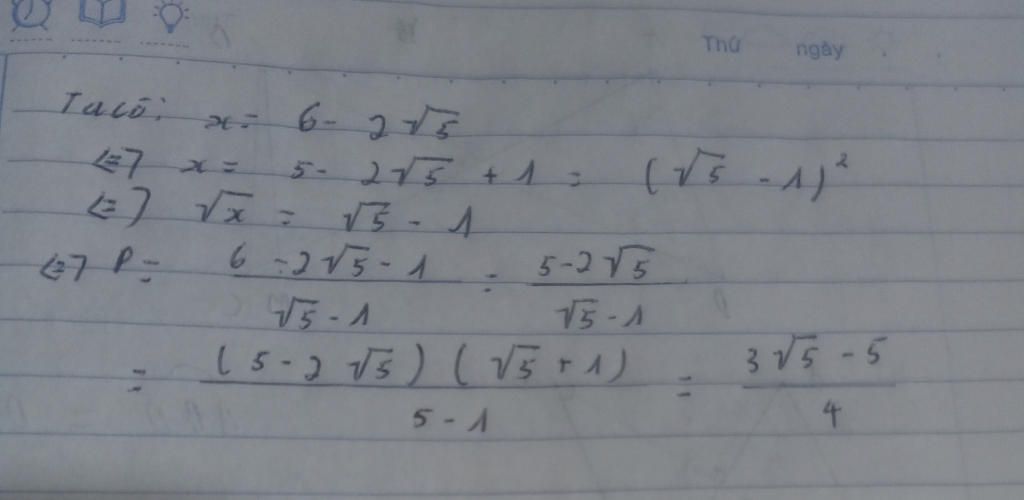 Thứ ngày
Ta có: x = 6 - 2√5
<=> x = 5 - 2√5 + 1 = (√5 - 1)²
<=> √x = √5 - 1
<=> P = (6 - 2√5 - 1)/(√5 - 1) = (5 - 2√5)/(√5 - 1)
= ((5 - 2√5)(√5 + 1))/(5 - 1) = (3√5 - 5)/4